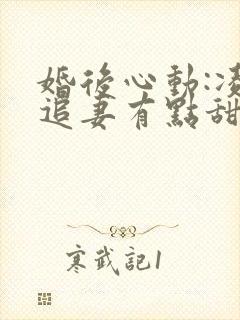 婚後心動:
追妻有點甜
寒武記1